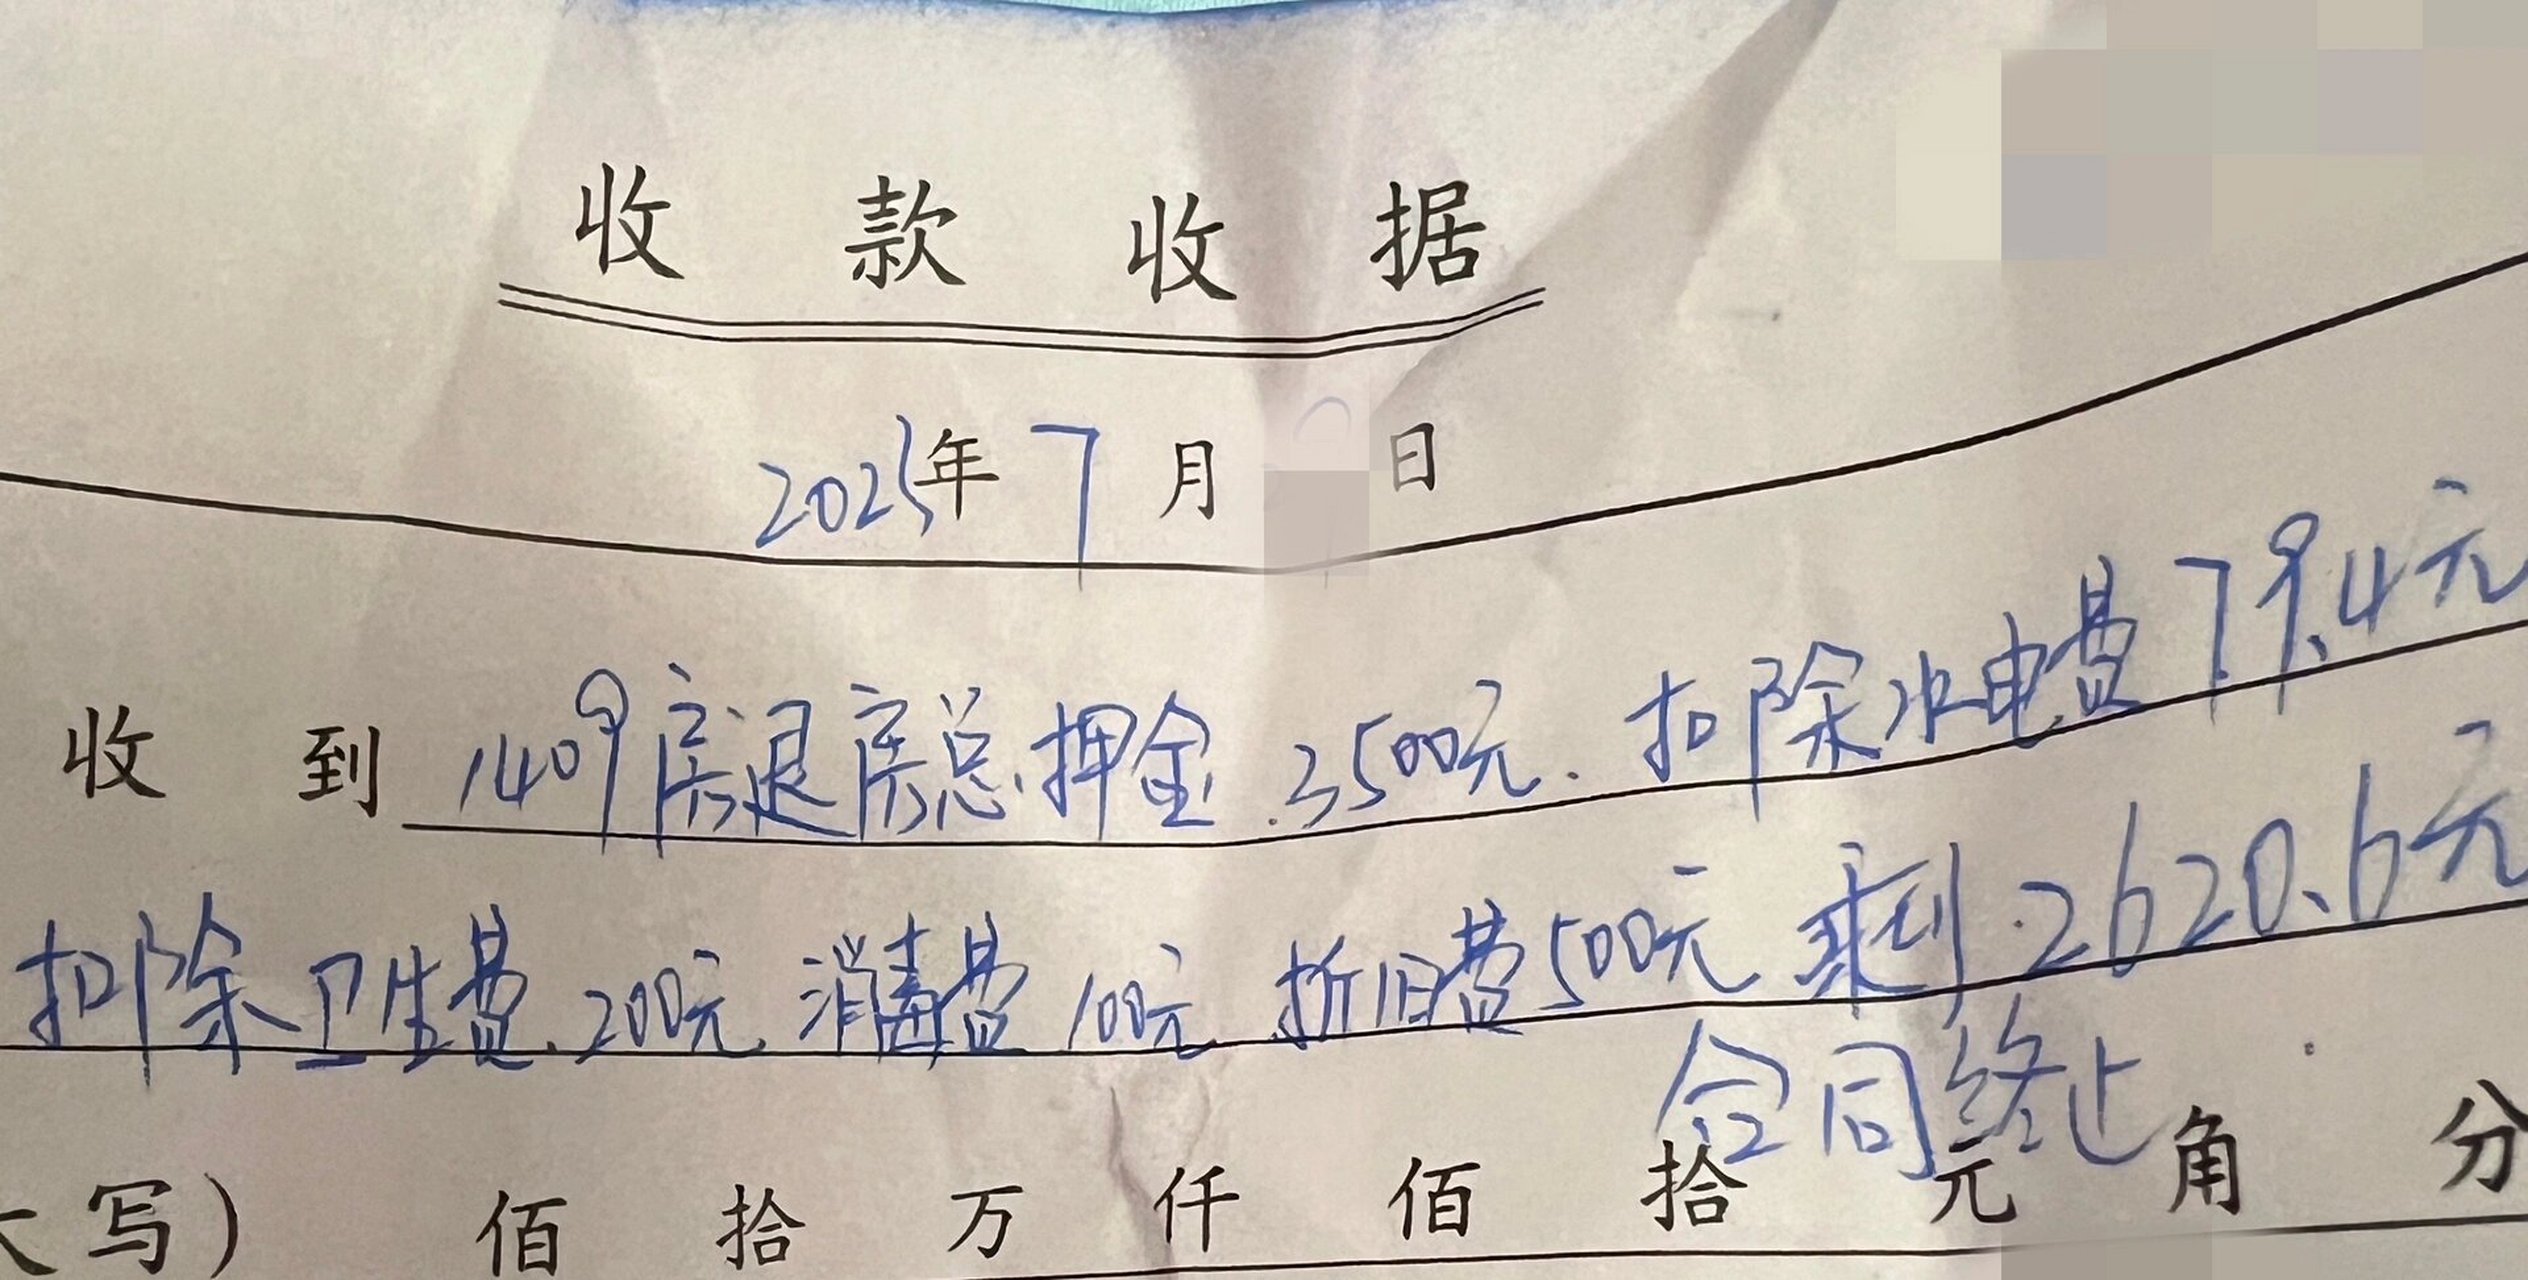 收款收据
2025年7月 日
收到1409房退房总押金.3500元.扣除水电费79.4元
扣除卫生费.200元.消毒费100元.折旧费500元剩.2620.6元
合同终止
大写) 佰 拾 万 仟 佰 拾 元 角 分